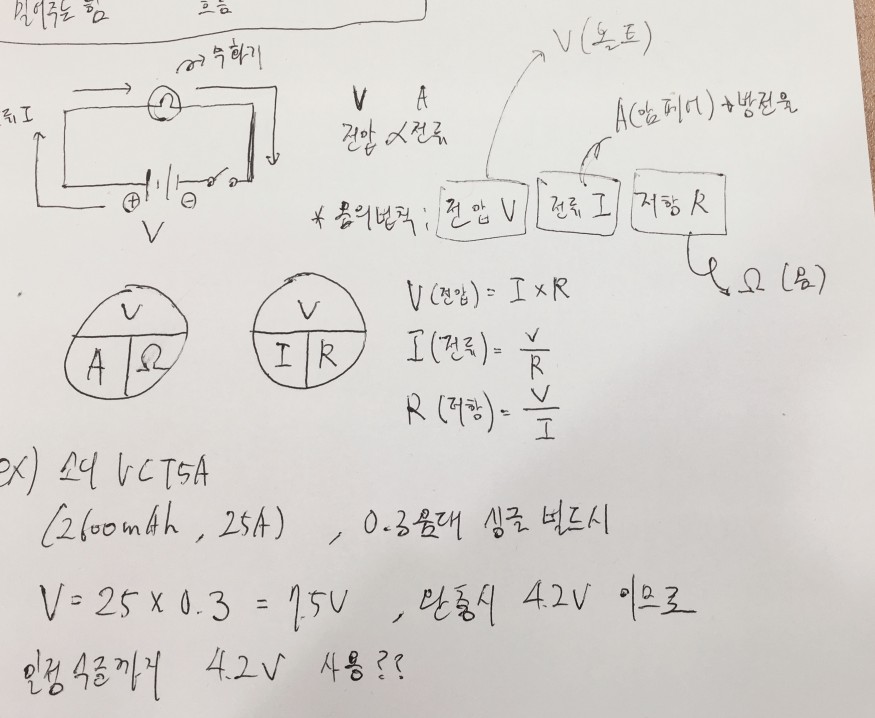 밀어주는 힘 흐름
→ 무화기
류 I
Ω
⊕ ⊖
V
V A
전압 ∝ 전류
V (볼트)
A (암페어) * 방전율
* 옴의법칙 : 전압 V 전류 I 저항 R
Ω (옴)
V
A Ω
V
I R
V (전압) = I × R
I (전류) = V/R
R (저항) = V/I
ex) 소니 VCT5A
(2600mAh , 25A) , 0.3옴대 싱글 빌드시
V = 25 × 0.3 = 7.5V , 만충시 4.2V 이므로
일정 4.2V 사용??